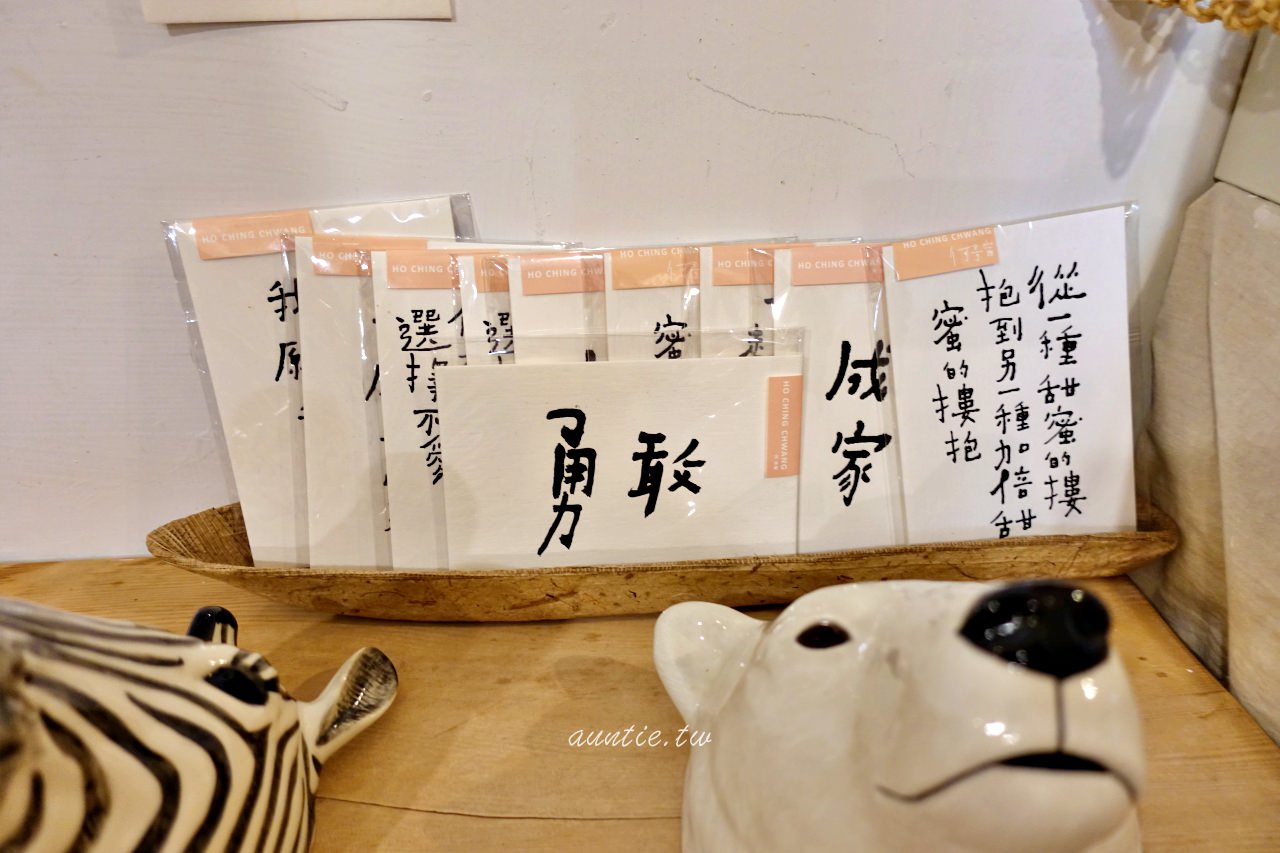 HO CHING CHWANG
我原
HO CHING
HO CHING CH
選擇不愛
HO
選
HO CHING CHWANG
HO CHING CHWANG
蜜
HO CHING
HO CHING CHWANG
成家
HO CHING CHWANG
從一種甜蜜的摟
抱到另一種加倍甜
蜜的摟抱
勇敢
HO CHING CHWANG
auntie.tw